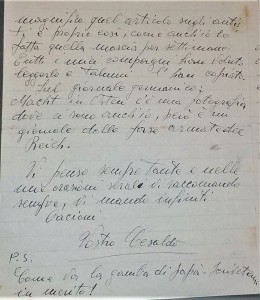 magnifico quel articolo sugli
ti è proprio così, come anch'io ho
fatto quella marcia per settimane
Tutti i miei compagni han voluto
leggerlo e l'han copiato
Sul giornale germanico:
Macht im Osten c'è una fotografia
dove ci sono anch'io, però è un
giornale delle forze armate del
Reich.
Vi penso sempre tanto e nelle
mie orazioni serali vi raccomando
sempre, vi mando infiniti
bacioni
Vostro
P.S.
Come va la gamba di papà? Scrivetemi
in merito!